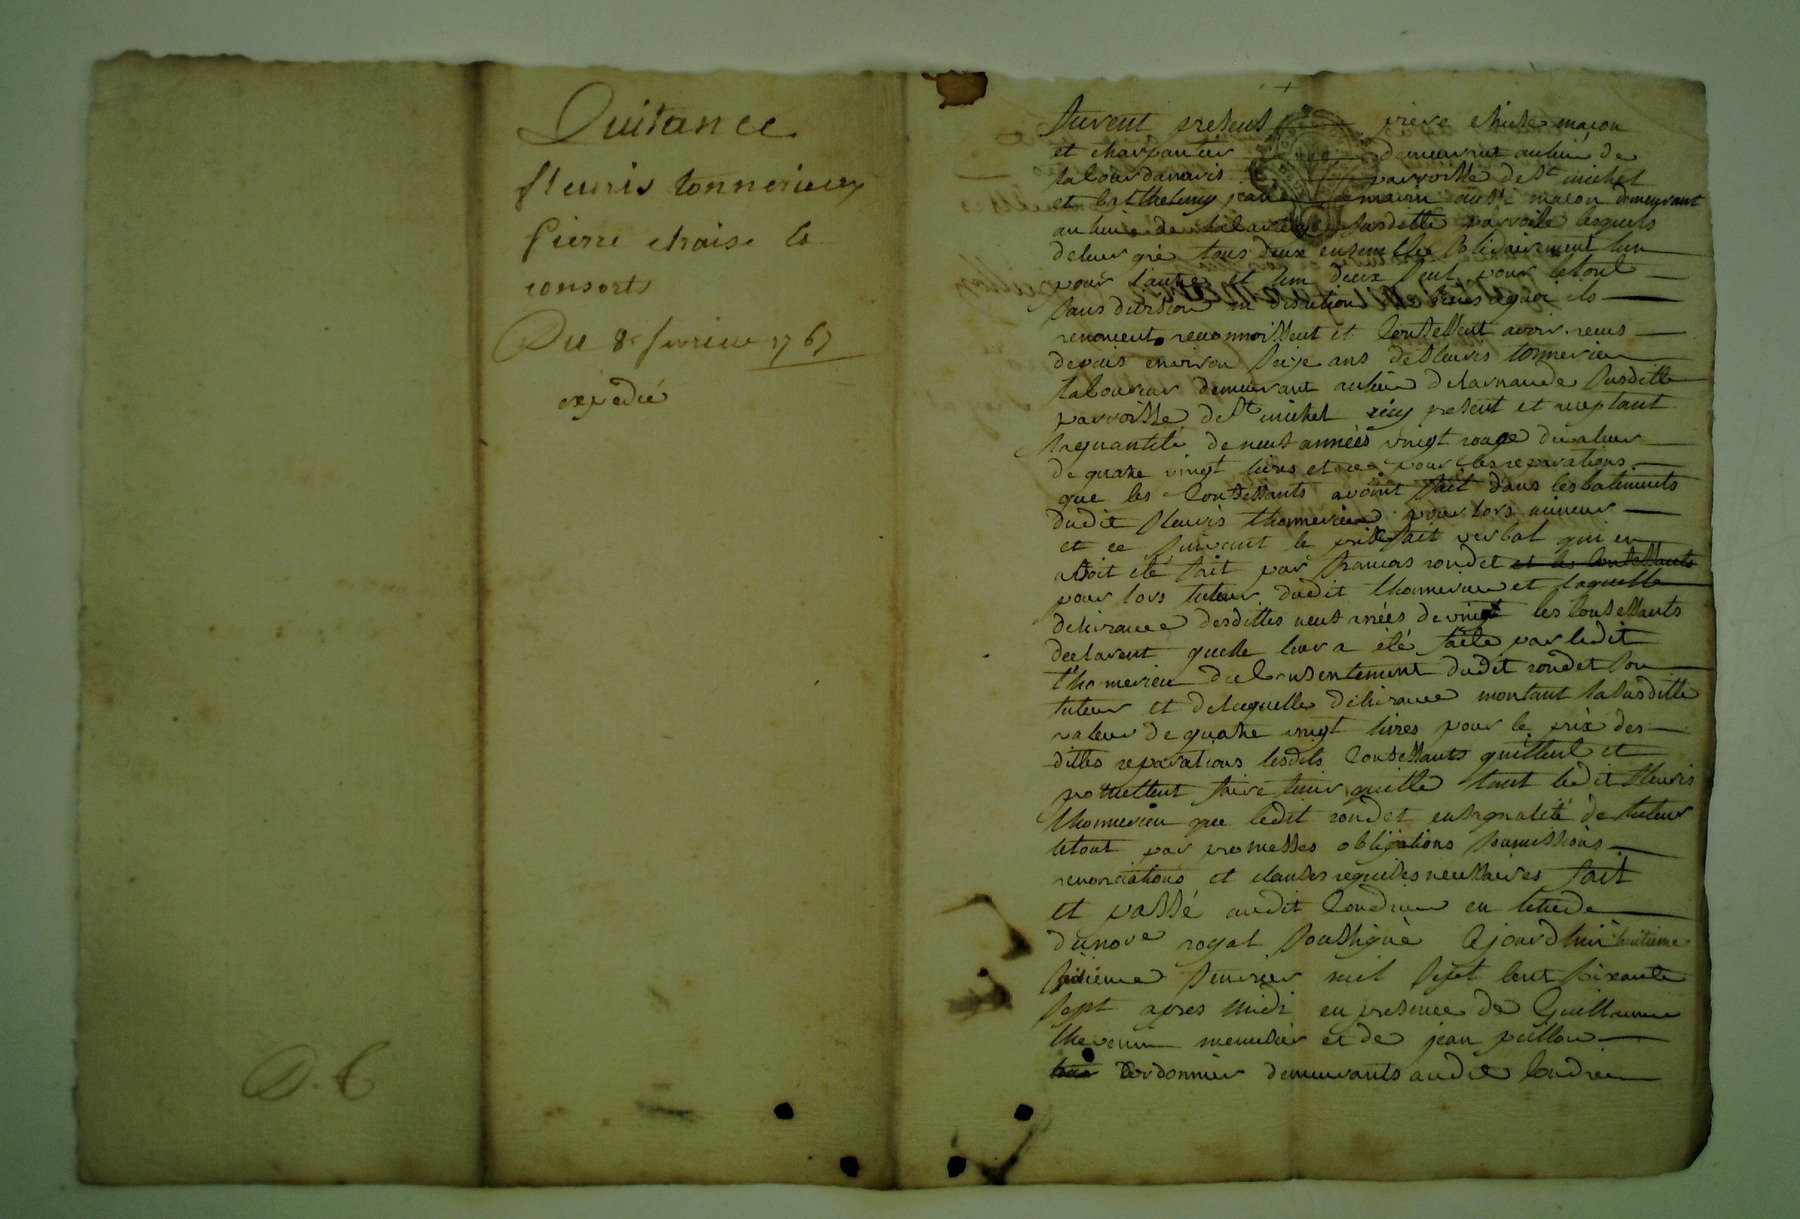 Quitance
fleuris tonnerieux
Pierre chaise et
consorts
Du 8e fevrier 1767
expedié
D. C
furent presents pierre chaise maçon
et charpantier demeurant au lieu de
parroisse de St michel
et barthelemy jean aussi maçon demeurant
au lieu de susditte parroisse lesquels
de leur gré tous deux ensemble solidairement lun
pour lautre et lun deux seul pour letout
sans division ni discution a quoi ils
renoncent reconnoissent et confessent avoir reçus
depuis environ seize ans de fleuris tonnerieu
laboureur demeurant au lieu de larnaude susditte
parroisse de St michel icy present et acceptant
la quantité de neuf années vingt rouge de valeur
de quatre vingt livres et ce pour les reparations
que les confessants avoint fait dans les batiments
dudit fleuris thomerieu pour lors mineur
et ce suivant le prisfait verbal qui en
avoit eté fait par francois rondet et les confessants
pour lors tuteur dudit thomerieu et laquelle
delivrance desdittes neuf anées de vingt les confessants
declarent quelle leur a été faite par ledit
thomerieu du consentement dudit rondet son
tuteur et de laquelle delivrance montant la susditte
valeur de quatre vingt livres pour le prix des
dittes reparations lesdits confessants quittent et
promettent faire tenir quitte tant ledit fleuris
thomerieu que ledit rondet en sa qualité de tuteur
letout par promesses obligations soumissions
renonciations et clauses requises necessaires fait
et passé audit Condrieu en letude
du nore royal soussigné cejourdhui huitieme
fevrier mil sept cent soixante
sept apres midi en presence de Guillaume
thevenin menusier et de jean peillon
cordonnier demeurants audit Condrieu